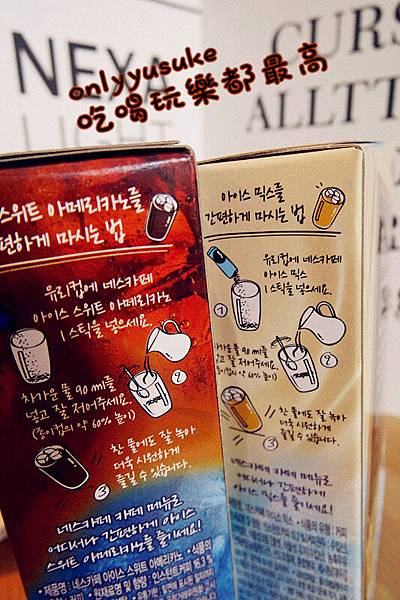 NEXA
CURS
ALLTT
onlyyusuke
吃喝玩樂都最高
스위트 아메리카노를
편하게 마시는 법
유리컵에 네스카페
아이스 스위트 아메리카노
1스틱을 넣으세요.
1
2
차가운 물 90 ml를
넣고 잘 저어주세요.
(종이컵의 약 60% 높이)
찬 물에도 잘 녹아
더욱 시원하게
즐길 수 있습니다.
3
네스카페 카페 메뉴로
어디서나 간편하게 아이스
스위트 아메리카노를 즐기세요!
• 제품명 : 네스카페 아이스 스위트 아메리카노 • 식품의
아이스 믹스를
간편하게 마시는 법
유리컵에 네스카페
아이스 믹스
1스틱을 넣으세요.
1
2
차가운 물 90 ml를
넣고 잘 저어주세요.
(종이컵의 약 60% 높이)
찬 물에도 잘 녹아
더욱 시원하게
즐길 수 있습니다.
3
네스카페 카페 메뉴로
어디서나 간편하게
아이스 믹스를 즐기세요!